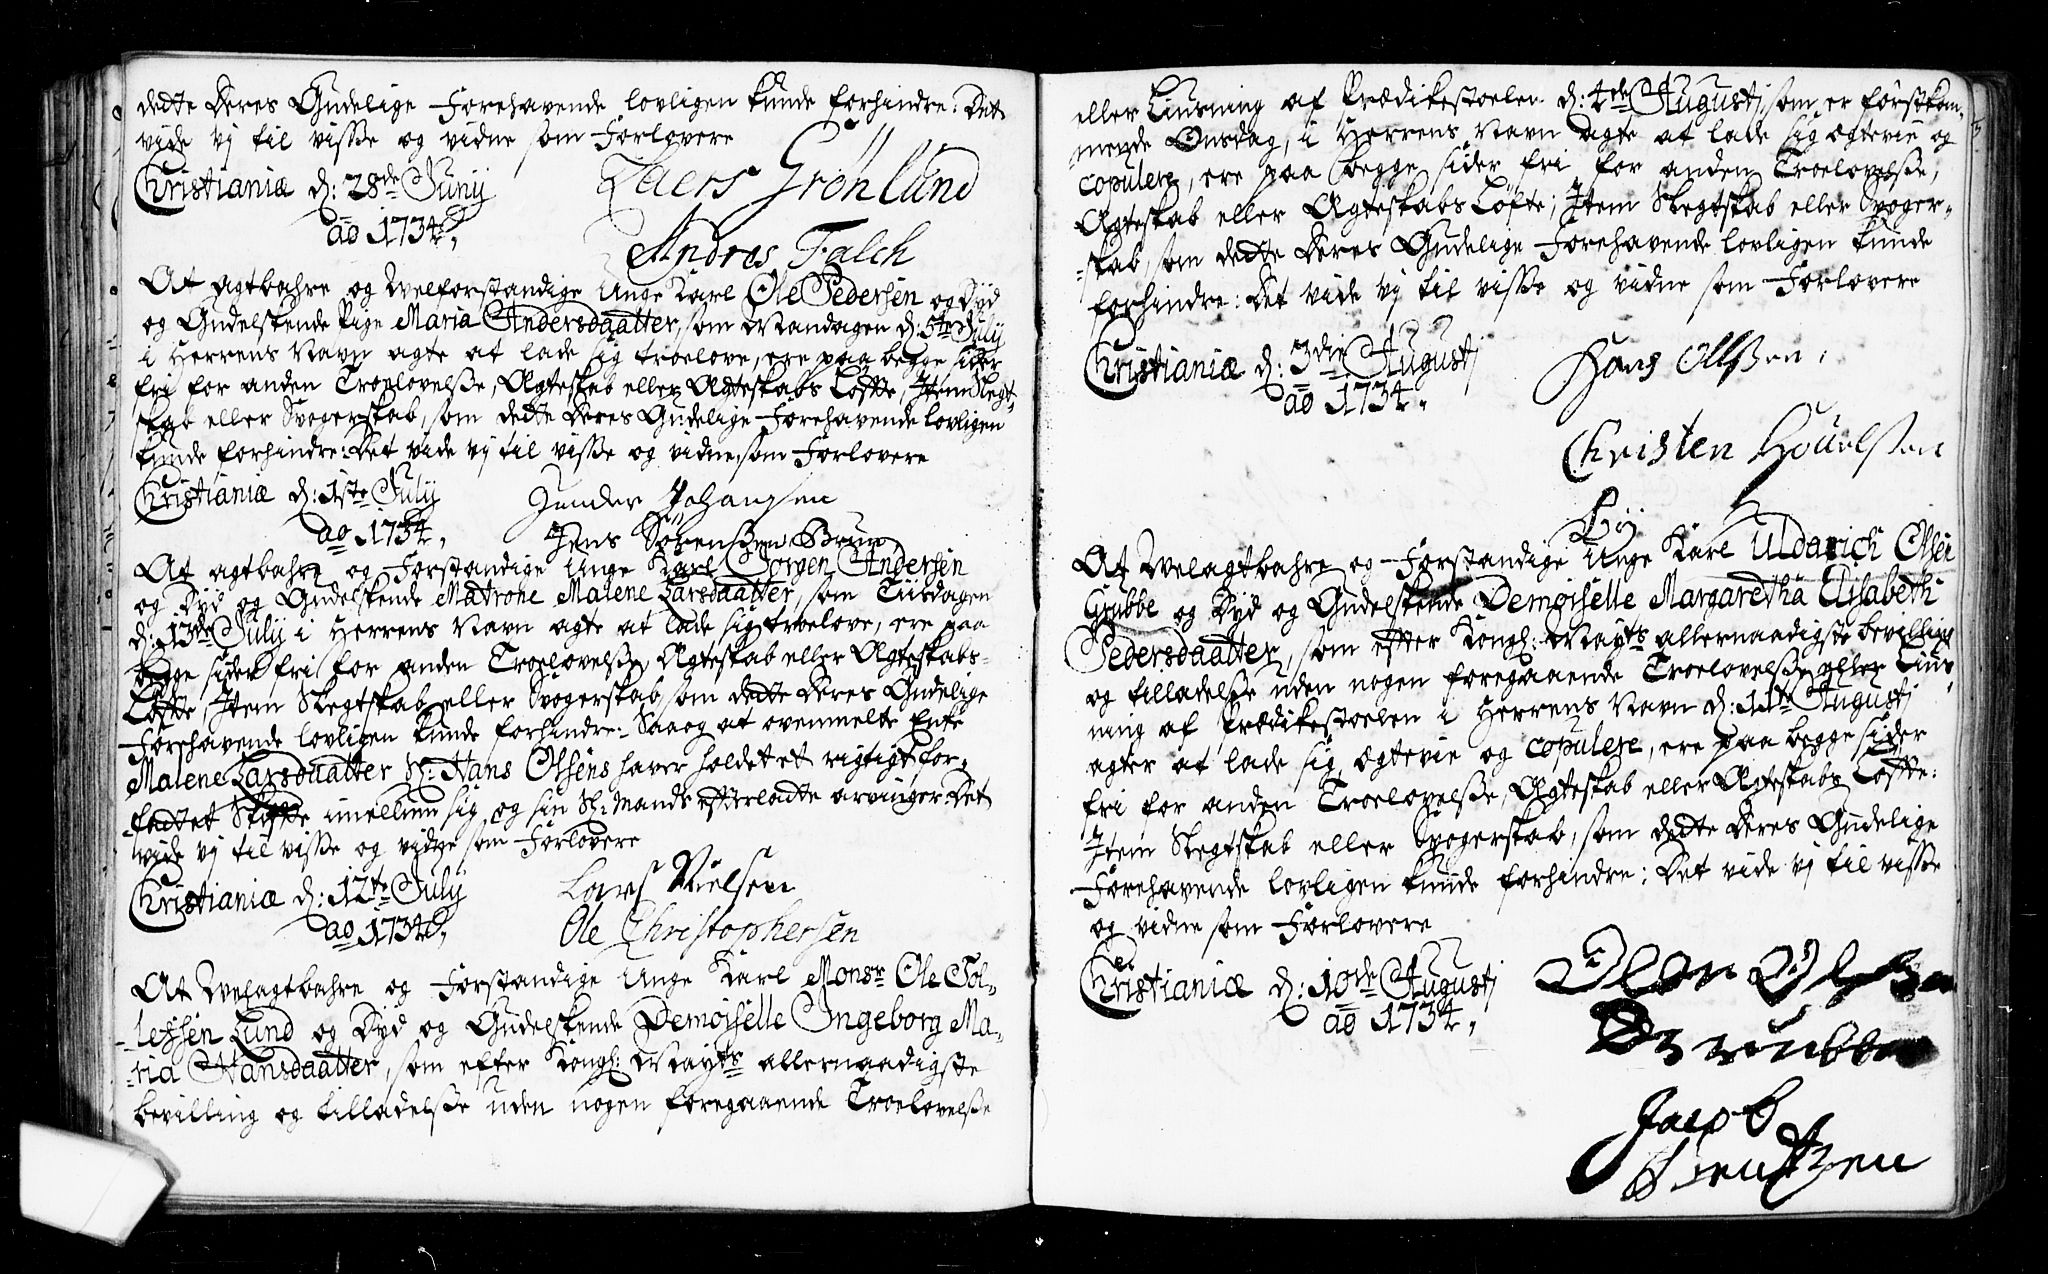 dette deres Gudelige Forehavende lovligen kunde forhindre: Det
vide vj til visse og vidne som Forlovere
Christianiæ d: 28de Junij
ao 1734.
Laers Grönlund
Andres Falch
At agtbahre og Welforstandige Unge Karl Ole Pedersen og Dyd
og Gudelskende Pige Maria Andersdaatter, som Mandagen d: 5te July
i Herrens Navn agte at lade sig troelove, ere paa begge sider
fri for anden Troelovelse, Ægteskab eller Ægteskabs Løfte, Item Slegt-
skab eller Svogerskab, som dette deres Gudelige Forehavende lovligen
kunde forhindre: Det vide vj til visse og vidne som Forlovere
Christianiæ d: 1ste July
ao 1734.
Gunder Johansen
Jens Sørensen Bruun
At agtbahre og Forstandige Unge Karl Jörgen Andersen
og Dyd og Gudelskende Matrone Malene Larsdaatter, som Tiisdagen
d: 13de July i Herrens Navn agte at lade sig troelove, ere paa
begge sider fri for anden Troelovelse, Ægteskab eller Ægteskabs-
Løfte, Item Slegtskab eller Svogerskab, som dette deres Gudelige
Forehavende lovligen kunde forhindre: Saa og at ovenmelte Enke
Malene Larsdaatter Sl: Hans Olsens haver holdet et rigtigt for-
fattet Skifte imellum sig og sin Sl: Mands efterladte arvinger. Det
vide vj til visse og vidne som Forlovere
Christianiæ d: 12te July
ao 1734.
Lars Nielsen
Ole Christophersen
At Welagtbahre og Forstandige Unge Karl Monsr Ole Tol-
lefsen Lund og Dyd og Gudelskende Demoiselle Ingeborg Ma-
ria Hansdaatter, som efter Kongl: Mayts allernaadigste
bevilling og tilladelse uden nogen foregaaende Troelovelse
eller Liusning af Prædikestoelen d: 4de Augustj som er førstkom-
mende Onsdag, i Herrens Navn agte at lade sig ægtevie og
copulere, ere paa begge sider fri for anden Troelovelse,
Ægteskab eller Ægteskabs Løfte; Item Slegtskab eller Svoger-
skab, som dette deres Gudelige Forehavende lovligen kunde
forhindre: Det vide vj til visse og vidne som Forlovere
Christianiæ d: 3die Augustj
ao 1734.
Hans Ollsen
Christen Houelsen
Lij
At Welagtbahre og Forstandige Unge Karl Uldarich Olsen
Grubbe og Dyd og Gudelskende Demoiselle Margaretha Elisabeth
Pedersdaatter, som efter Kongl: Mayts allernaadigste bevilling
og tilladelse uden nogen foregaaende Troelovelse eller Lius-
ning af Prædikestoelen i Herrens Navn d: 11te Augustj
agter at lade sig ægtevie og copulere, ere paa begge sider
fri for anden Troelovelse, Ægteskab eller Ægteskabs Løfte:
Item Slegtskab eller Svogerskab, som dette deres Gudelige
Forehavende lovligen kunde forhindre: Det vide vj til visse
og vidne som Forlovere
Christianiæ d: 10de Augustj
ao 1734.
Grubbe
Jacob